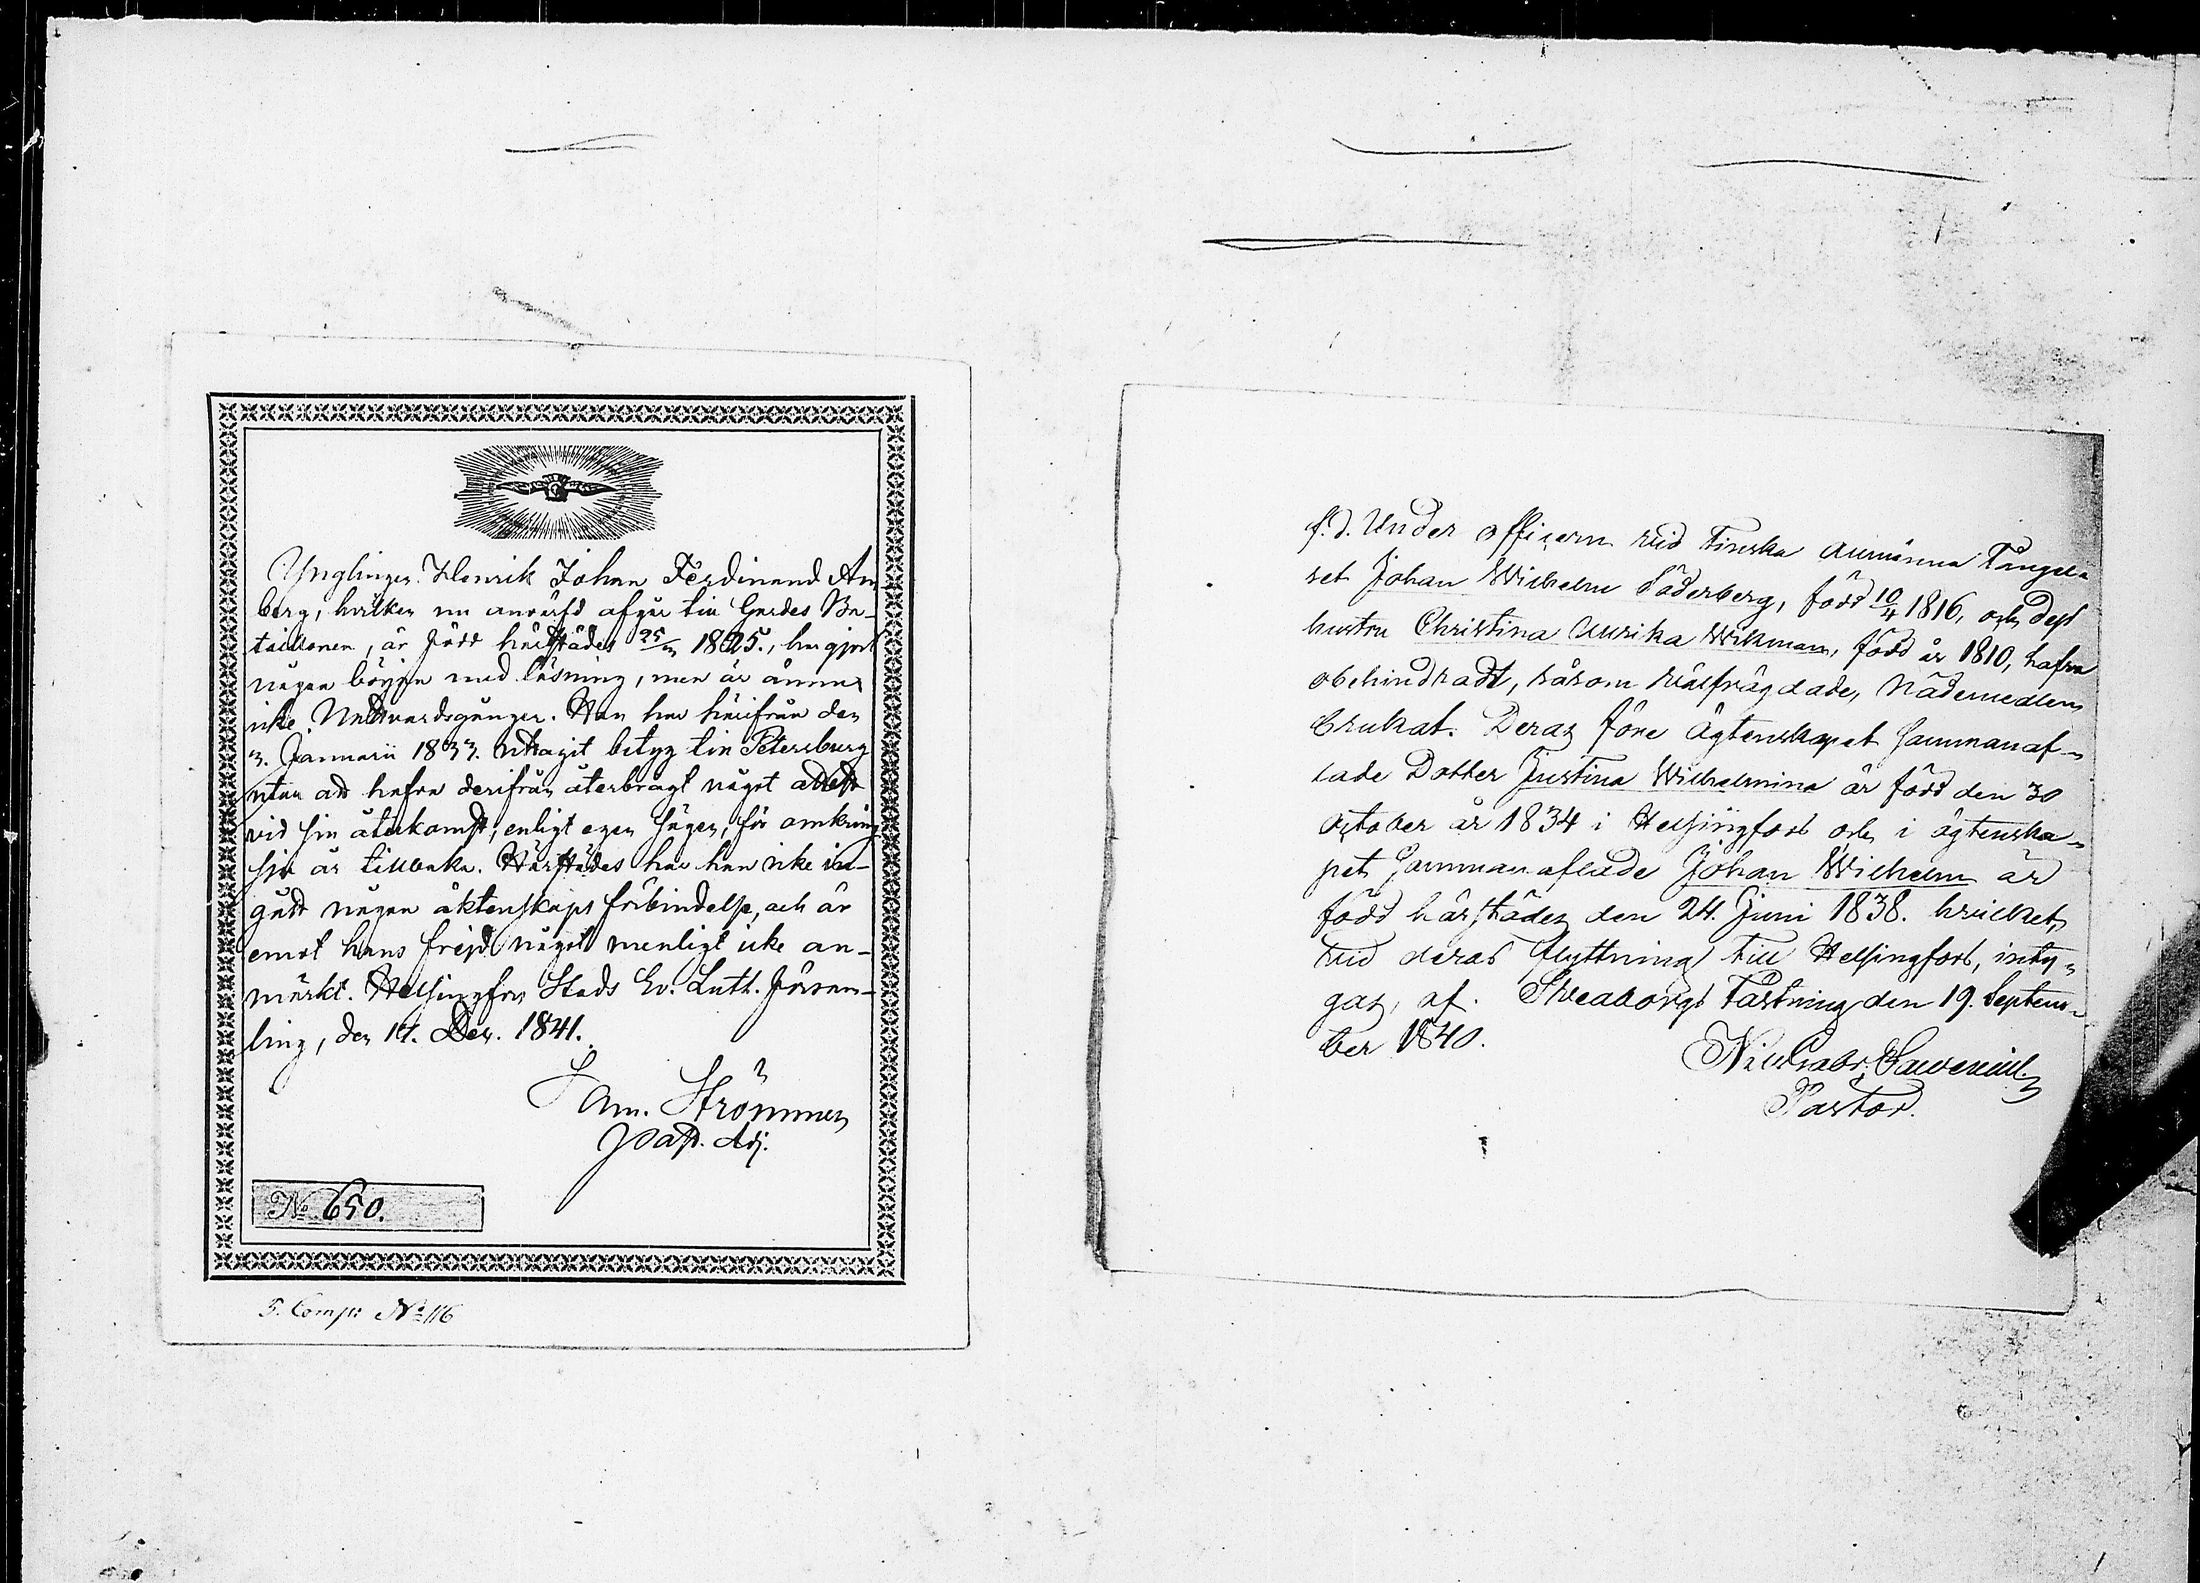 Ynglingen Henrik Johan Ferdinand Am
berg, hvilken nu anvärfd afgår till Gardes Ba-
taillonen, är född härstädes 25/11 1825., har gjort
någon början med läsning, men är ännu
icke Nattvardsgången. Han har härifrån den
3. Januarii 1833. uttagit betyg till Petersburg
utan att hafva derifrån återbragt något attest
vid sin återkomst, enligt egen sägen, för omkring
sju år tillbaka. Härstädes har han icke in-
gått någon äktenskaps förbindelse, och är
emot hans frejd något menligt icke an-
märkt. Helsingfors Stads Ev. Luth. Försam-
ling, den 17. Dec. 1841.
Sam. Strömmer
Past. Adj.
No 650.
5. Comp: No 116
f.d. Under officern vid Finska Allmänna Fångela
ret Johan Wilhelm Säderberg, född 10/4 1816, och dess
hustru Christina Ulrika Wikman, född år 1810, hafva
obehindradt, såsom välfrägdade, Nådemedlen
brukat. Deras före ägtenskapet sammanaf-
lade Dotter Justina Wilhelmina är född den 30
October år 1834 i Helsingfors och i ägtenska-
pet sammanaflade Johan Wilhelm är
född härstädes den 24. Juni 1838. hvilket,
vid deras flyttning till Helsingfors, inty-
gas, af. Sveaborgs Fästning den 19. Septem-
ber 1840.
Pastor.